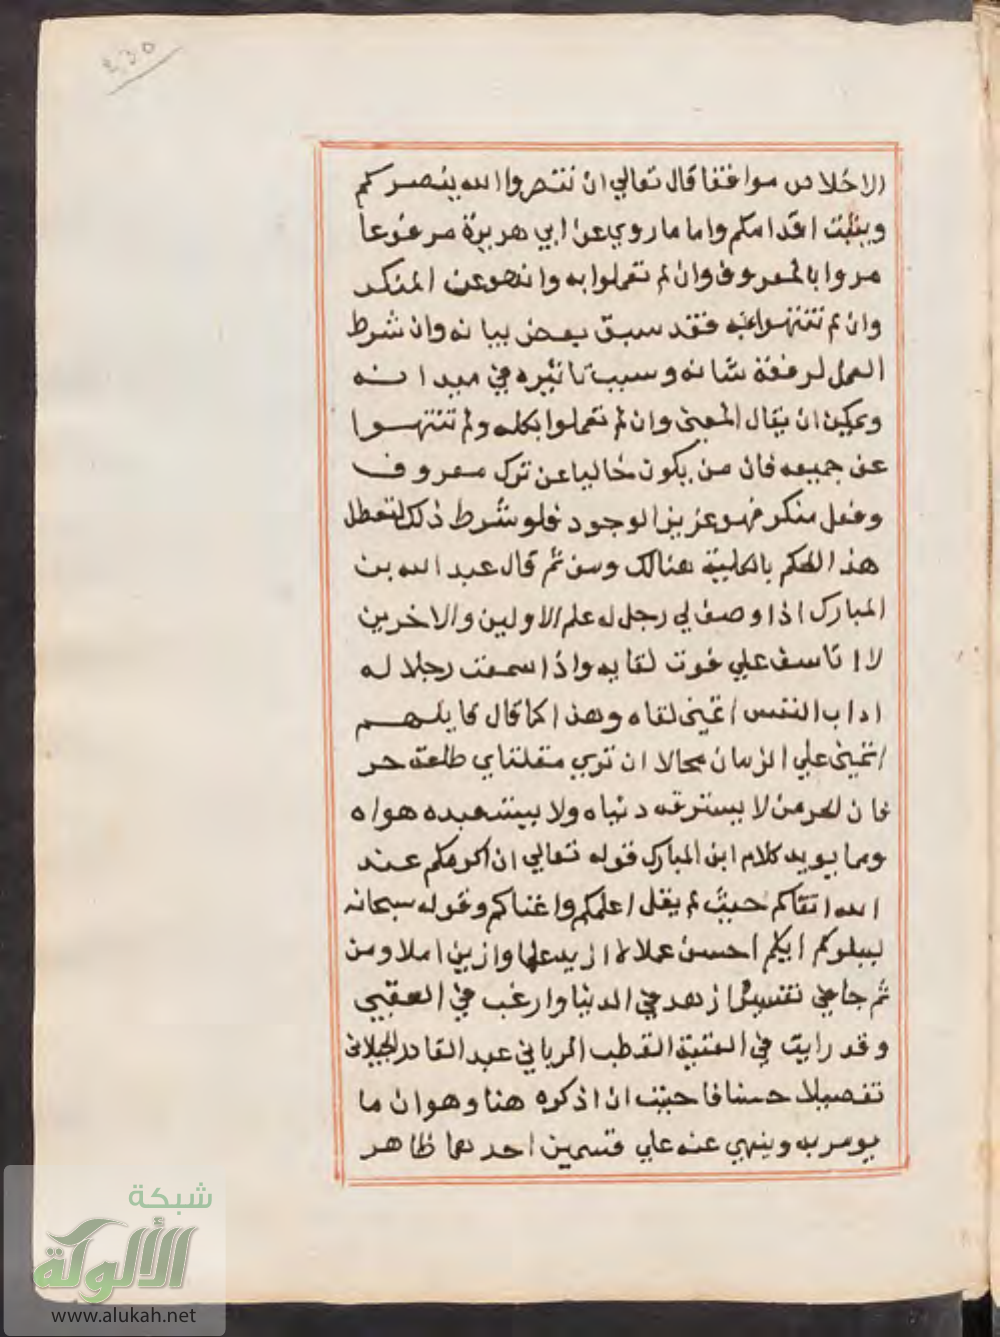 ٤٣٥
الاخلاص موافقا قال تعالي ان تنصروا الله ينصركم
ويثبت اقدامكم واما ما روي عن ابي هريرة مرفوعا
مروا بالمعروف وان لم تعملوا به وانهوا عن المنكر
وان لم تنتهوا عنه فقد سبق بعض بيانه وان شرط
العمل لرفعة شانه وسبب تاثيره في ميدانه
ويمكن ان يقال المعني وان لم تعملوا بكله ولم تنتهوا
عن جميعه فان من يكون خاليا عن ترك معروف
وفعل منكر فهو عزيز الوجود فلو شرط ذلك لتعطل
هذا الحكم بالكلية هنالك ومن ثم قال عبد الله بن
المبارك اذا وصف لي رجل له علم الاولين والاخرين
لا اتاسف علي فوت لقايه واذا سمعت رجلا له
اداب النفس اتمني لقاه وهذا كما قال قايلهم
اتمني علي الزمان محالا ان تري مقلتاي طلعة حر
فان الحر من لا يسترقه دنياه ولا يستعبده هواه
ومما يويد كلام ابن المبارك قوله تعالي ان اكرمكم عند
الله اتقاكم حيث لم يقل اعلمكم واغناكم وقوله سبحانه
ليبلوكم ايكم احسن عملا لا ازيد علما وازين املا ومن
ثم جا في تفسيره ازهد في الدنيا وارغب في العقبي
وقد رايت في الغنية القطب الرباني عبد القادر الجيلاني
تفصيلا حسنا فاحببت ان اذكره هنا وهو ان ما
يومر به وينهي عنه علي قسمين احدهما ظاهر
شبكة
الألوكة
www.alukah.net